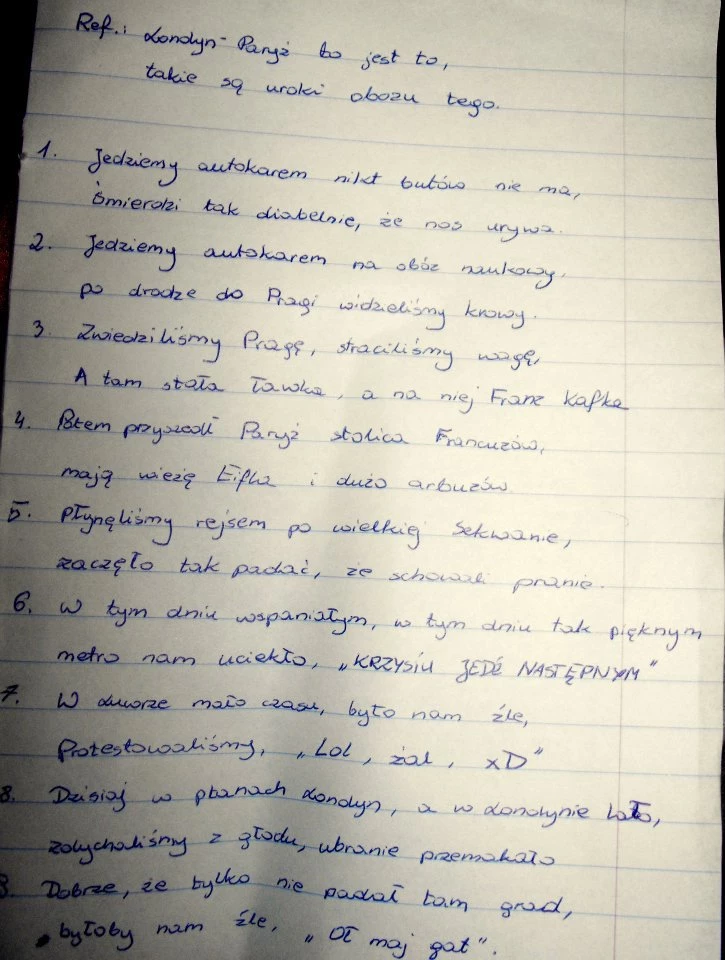 Ref.: Londyn-Paryż to jest to,
takie są uroki obozu tego.
1. Jedziemy autokarem nikt butów nie ma,
śmierdzi tak diabelnie, że nos urywa.
2. Jedziemy autokarem na obóz naukowy,
po drodze do Pragi widzieliśmy krowy.
3 Zwiedziliśmy Pragę, straciliśmy wagę,
A tam stała ławka, a na niej Franz Kafka
4. Potem przyszedł Paryż stolica Francuzów,
mają wieżę Eifla i dużo arbuzów
5. Płynęliśmy rejsem po wielkiej Sekwanie,
zaczęło tak padać, że schowali pranie.
6. W tym dniu wspaniałym, w tym dniu tak pięknym
metro nam uciekło, „KRZYSIU JEDŹ NASTĘPNYM"
7. W Luwrze mało czasu, było nam źle,
Protestowaliśmy, „Lol, żal, xD"
8. Dzisiaj w planach Londyn, a w Londynie lało,
zdychaliśmy z głodu, ubranie przemokało
9. Dobrze, że tylko nie padał tam grad,
byłoby nam źle, „Oł maj gat".